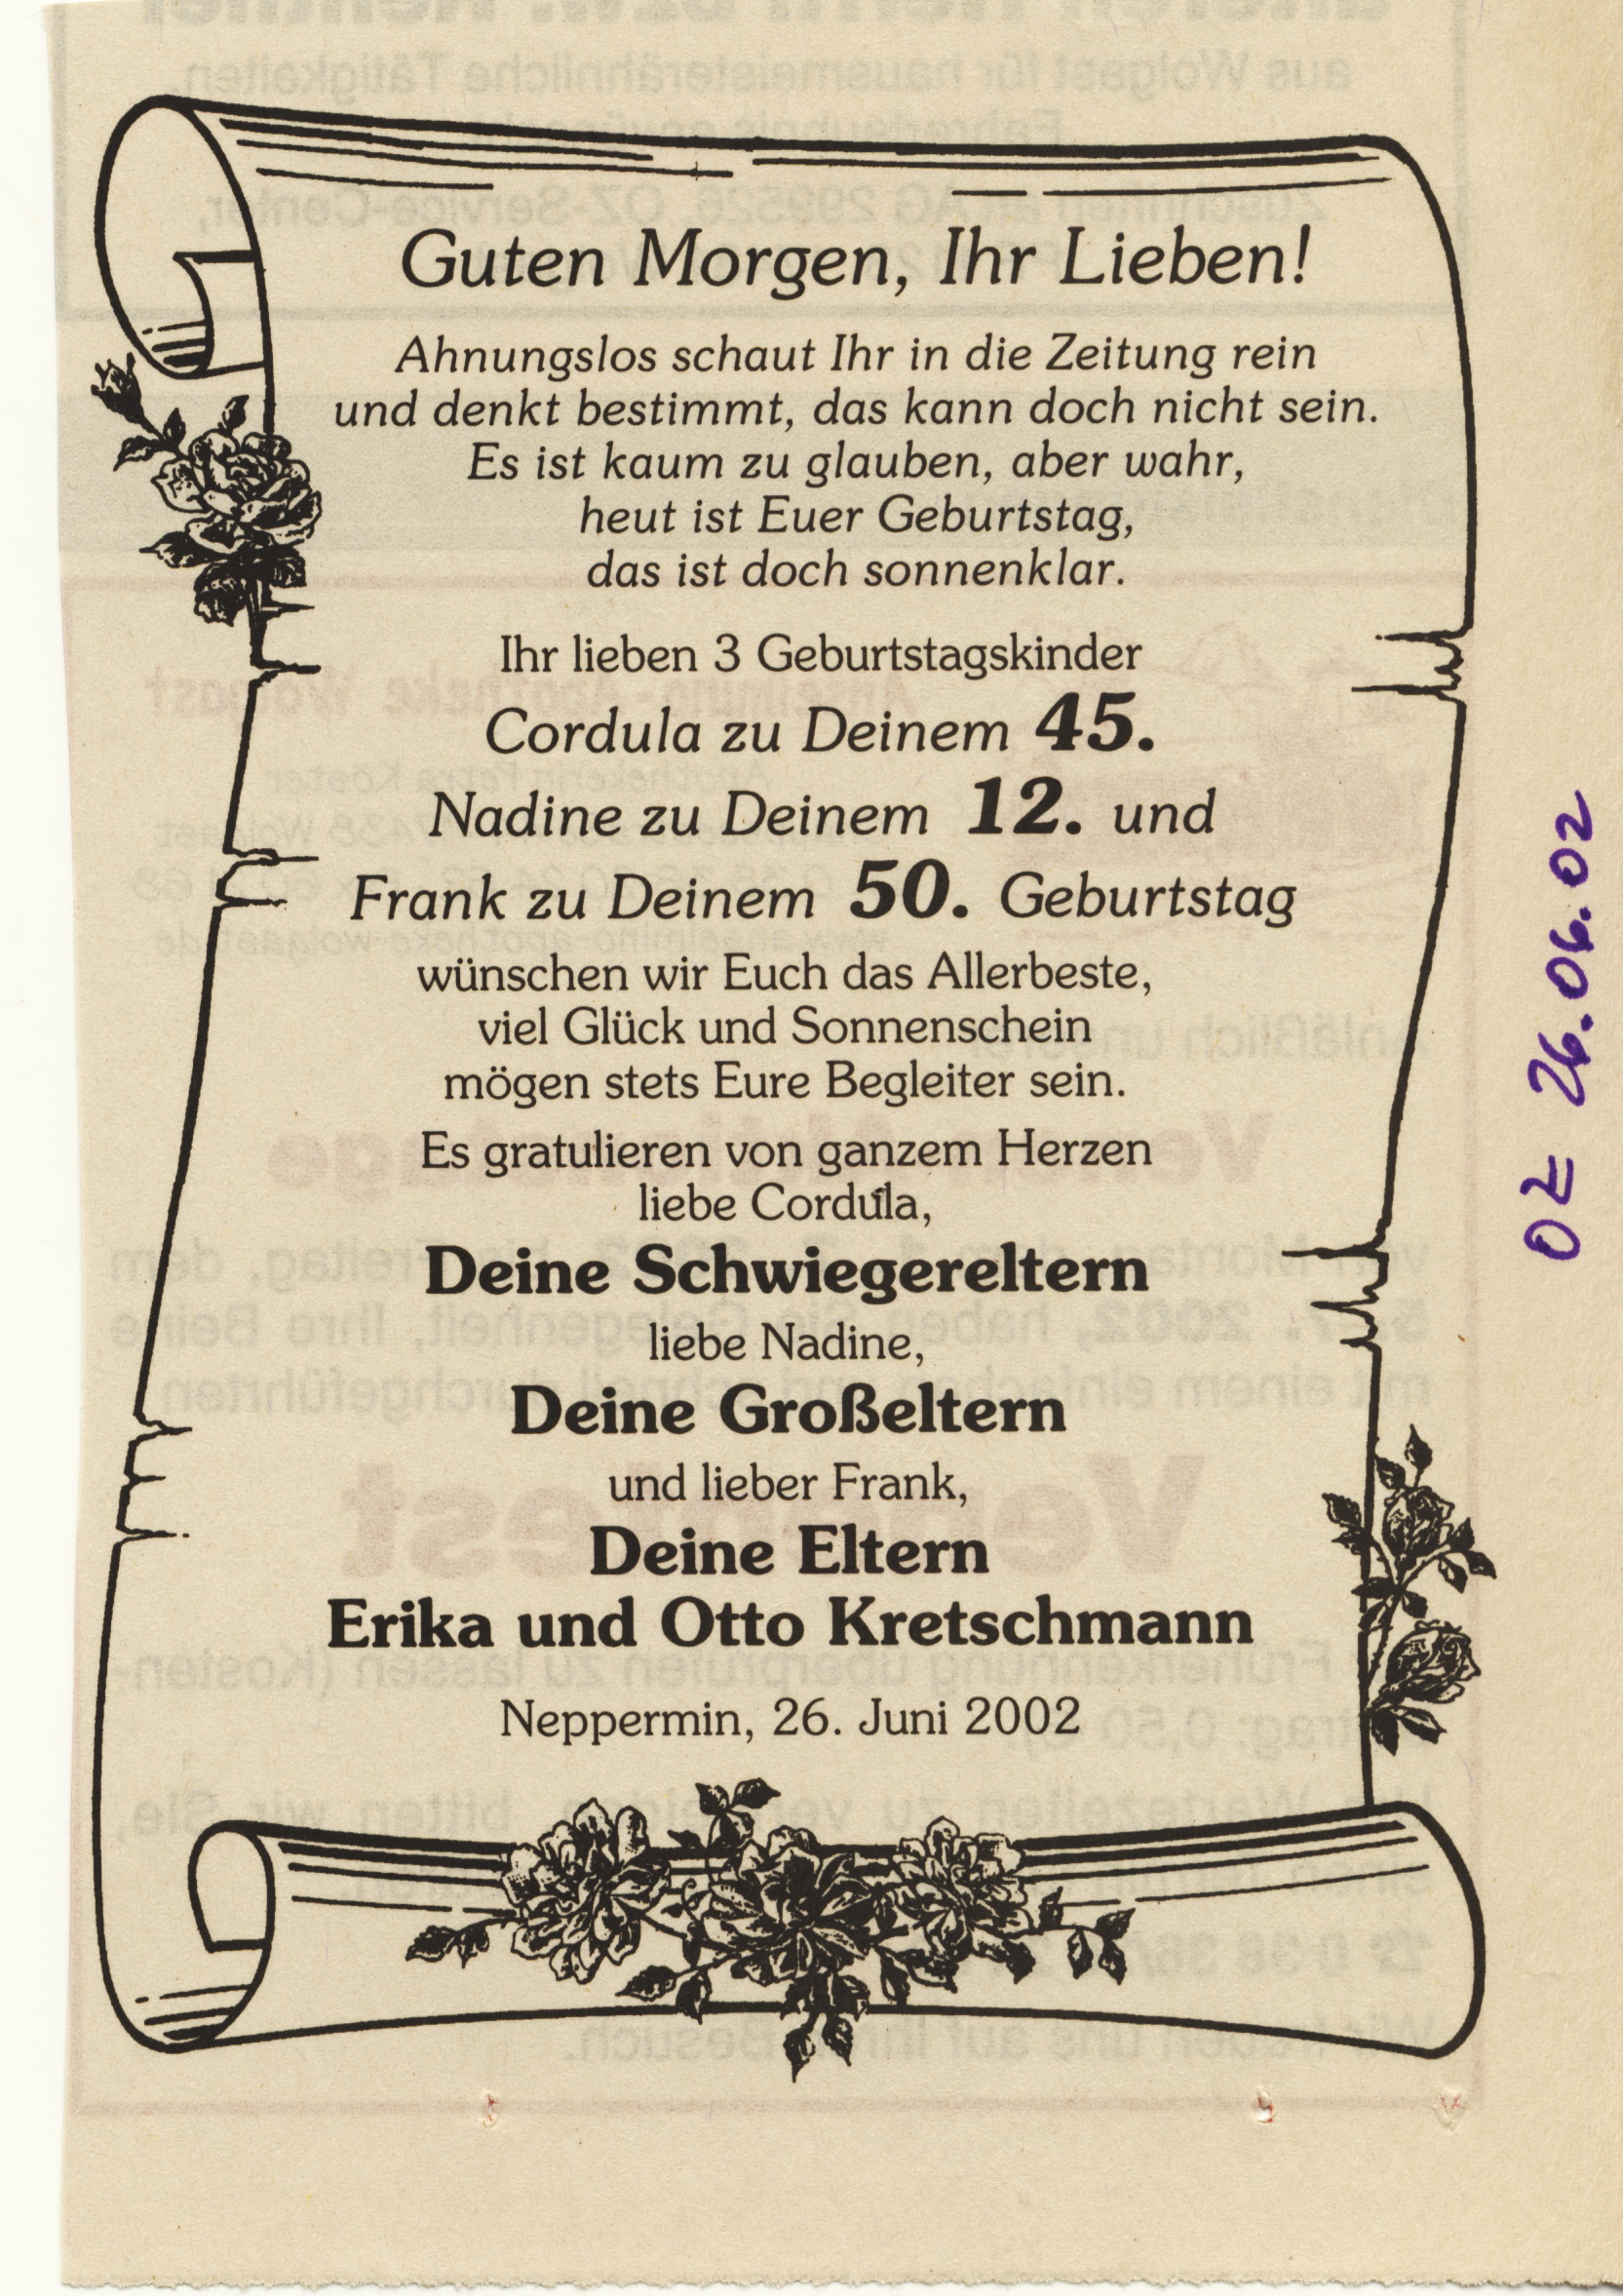 Guten Morgen, Ihr Lieben!
Ahnungslos schaut Ihr in die Zeitung rein
und denkt bestimmt, das kann doch nicht sein.
Es ist kaum zu glauben, aber wahr,
heut ist Euer Geburtstag,
das ist doch sonnenklar.
Ihr lieben 3 Geburtstagskinder
Cordula zu Deinem 45.
Nadine zu Deinem 12. und
Frank zu Deinem 50. Geburtstag
wünschen wir Euch das Allerbeste,
viel Glück und Sonnenschein
mögen stets Eure Begleiter sein.
Es gratulieren von ganzem Herzen
liebe Cordula,
Deine Schwiegereltern
liebe Nadine,
Deine Großeltern
und lieber Frank,
Deine Eltern
Erika und Otto Kretschmann
Neppermin, 26. Juni 2002
OZ 26.06.02